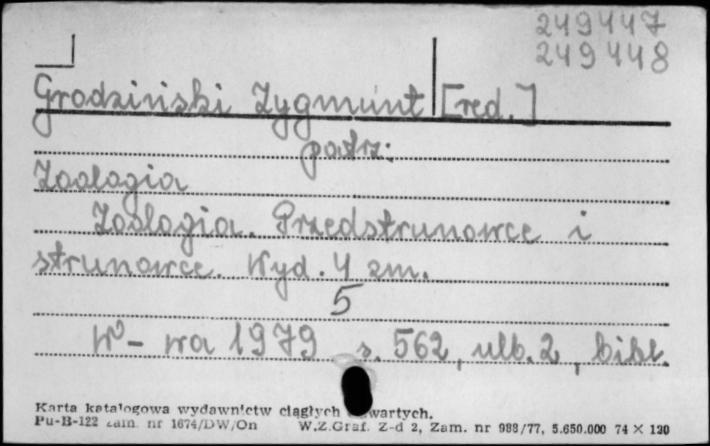 249447
249448
Grodziński Zygmunt [red.]
patrz:
Zoologia
Zoologia. Przedstrunowce i
strunowce. Wyd. 4 zm.
5
W-wa 1979 s. 562, nlb. 2, bibl.
Karta katalogowa wydawnictw ciągłych zwartych.
Pu-B-122 zam. nr 1674/DW/On W.Z.Graf. Z-d 2, Zam. nr 988/77, 5.650.000 74 X 120